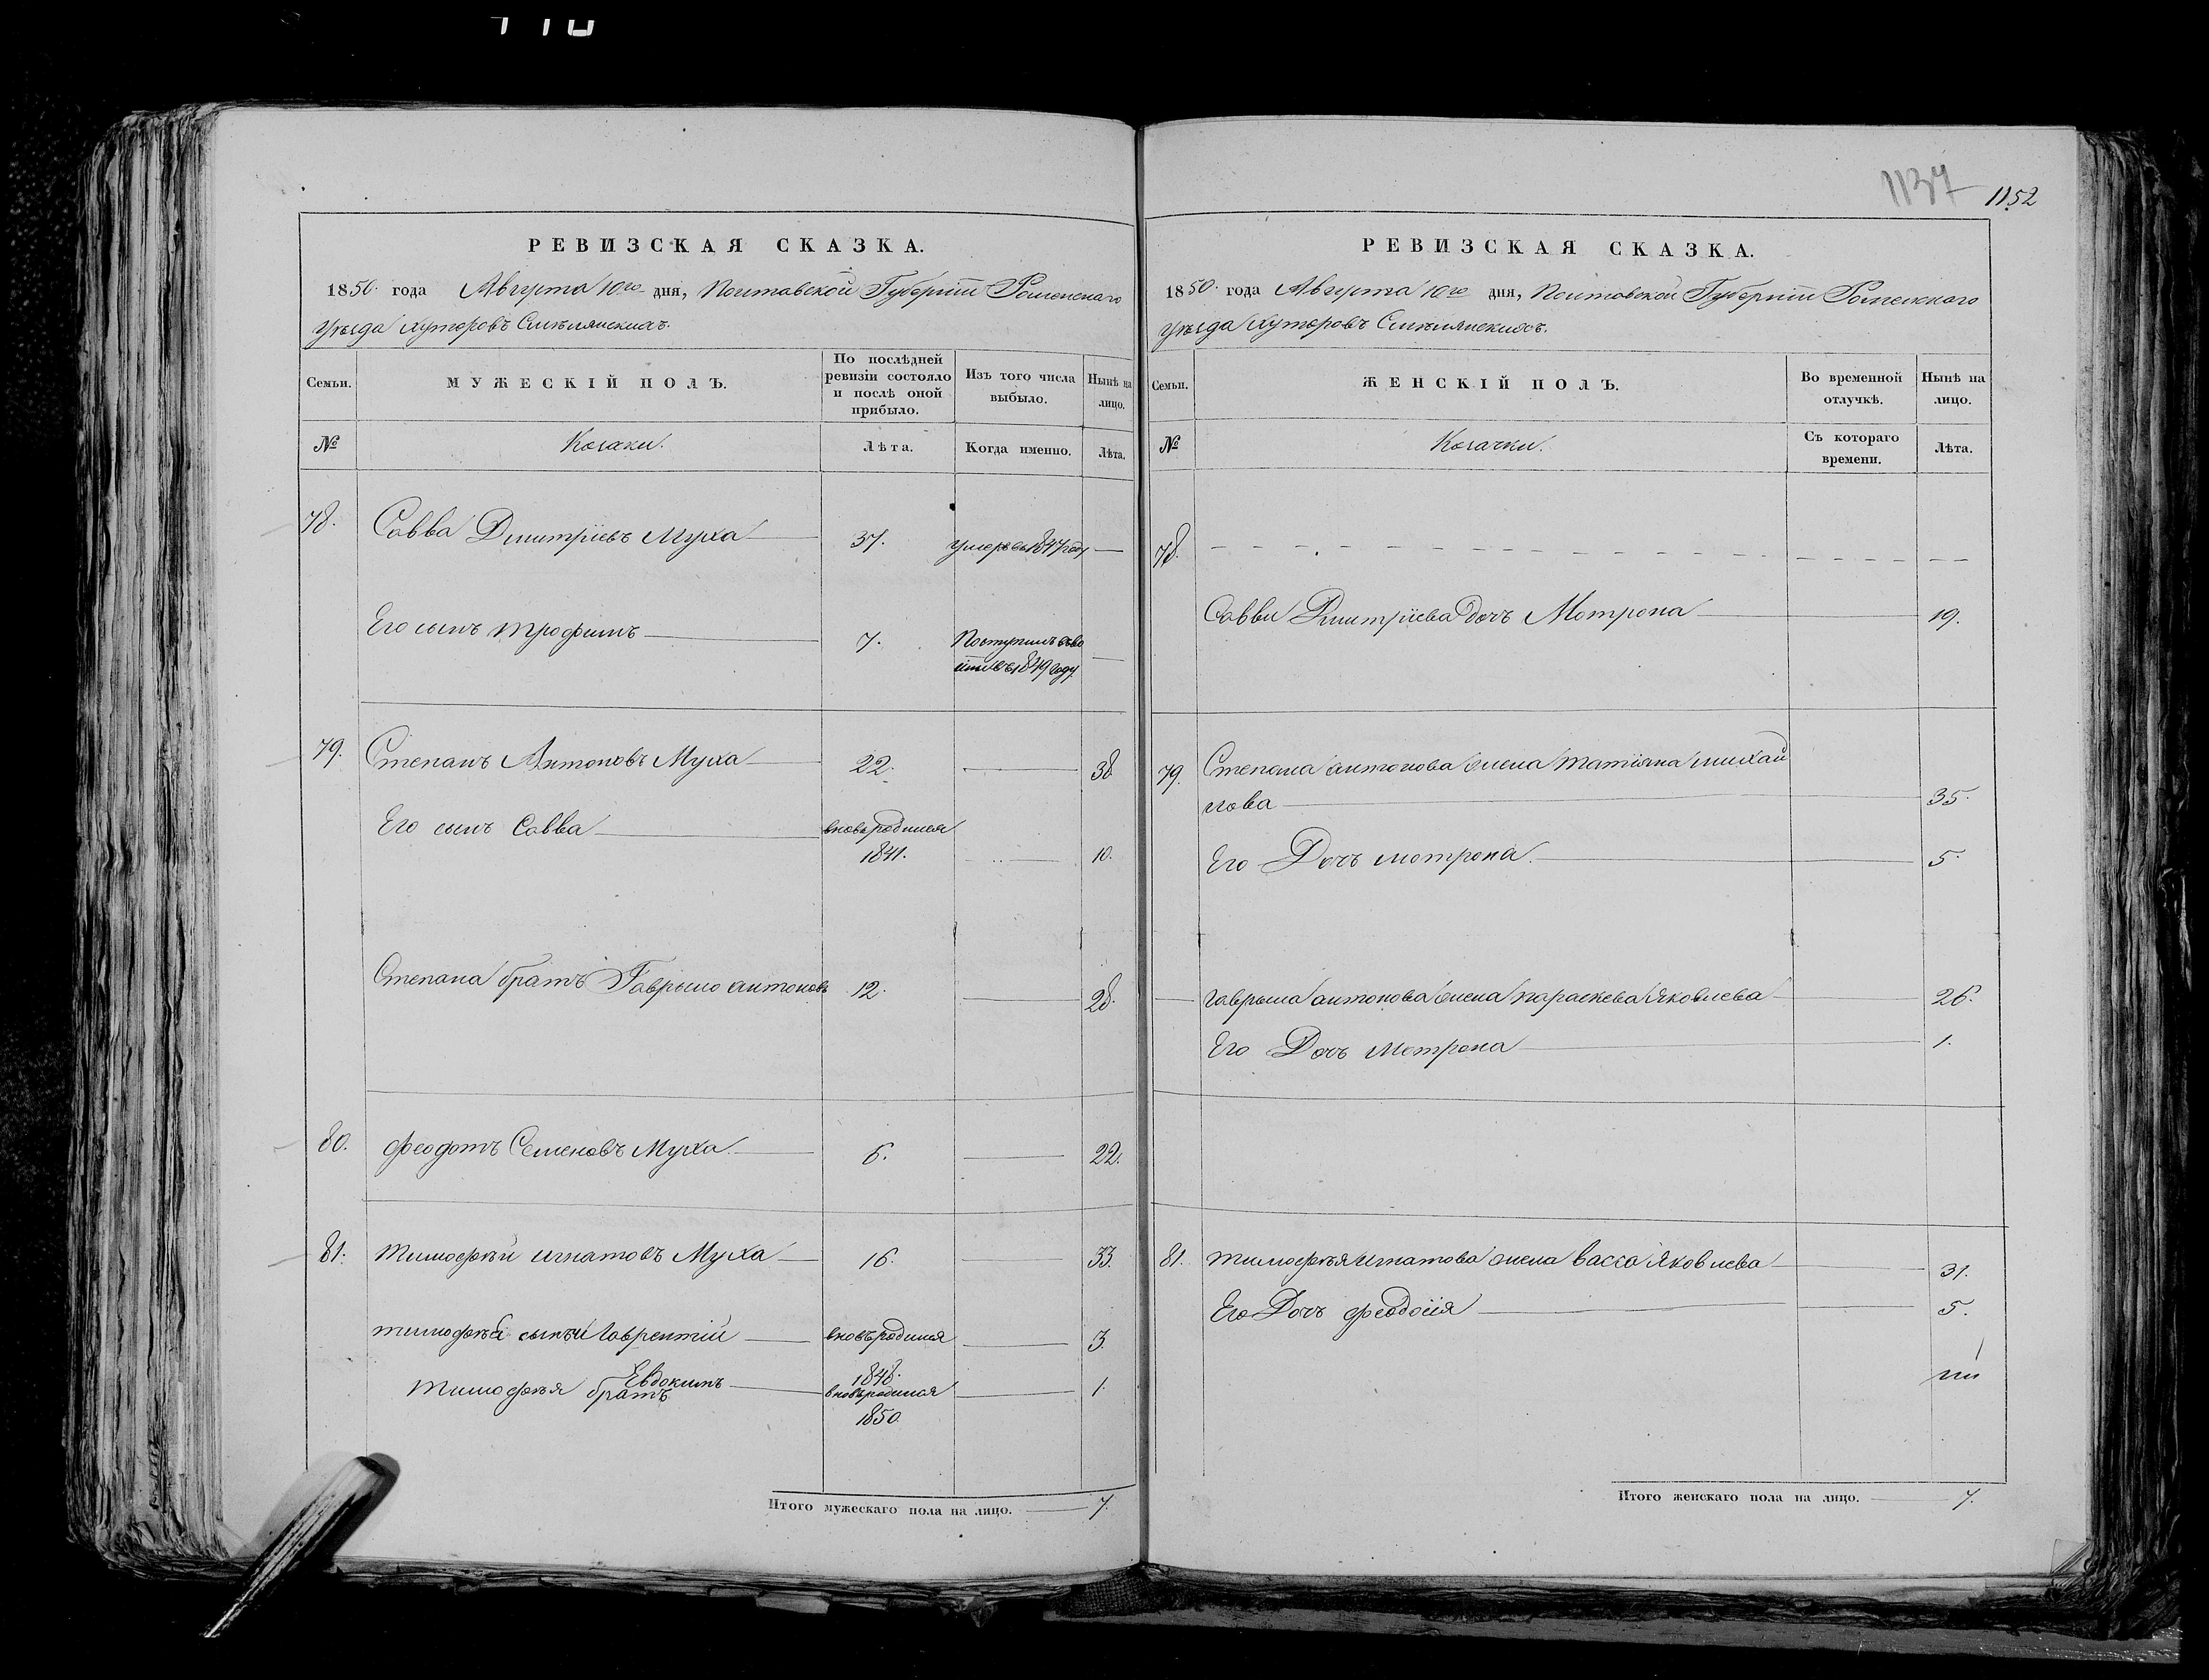 1137 1152
РЕВИЗСКАЯ СКАЗКА.
1850. года Августа 10го дня, Полтавской Губерніи Роменскаго
уѣзда хуторовъ Смѣлянскихъ.
Семьи.
МУЖЕСКІЙ ПОЛЪ.
По послѣдней ревизіи состояло и послѣ оной прибыло.
Изъ того числа выбыло.
Нынѣ на лицо.
№
Козаки.
Лѣта.
Когда именно.
Лѣта.
78. Савва Дмитріевъ Муха 37. умеръ въ 1847 году
Его сынъ трофимъ 7. Поступилъ въ 1849 году
79. Степанъ Антоновъ Муха 22. 38
Его сынъ Савва вновь родился
1841. 10.
Степана братъ Гаврыло антоновъ 12. 28.
80. феодотъ Семеновъ Муха 6. 22.
81. тимофѣй игнатовъ Муха 16. 33.
тимофѣя сынъ Лаврентій вновъ родился 3.
1848.
Евдокимъ
тимофѣя братъ вновь родился 1.
1850.
Итого мужескаго пола на лицо. 7.
РЕВИЗСКАЯ СКАЗКА.
1850. года Августа 10го дня, Полтавской Губерніи Роменскаго
уѣзда хуторовъ Смѣлянскихъ.
Семьи.
ЖЕНСКІЙ ПОЛЪ.
Во временной отлучкѣ.
Нынѣ на лицо.
№
Козачки.
Съ котораго времени.
Лѣта.
78.
Саввы Дмитріева дочъ Мотрона 19.
79. Степана антонова жена татіяна михай
лова 35.
Его Дочъ мотрона. 5.
гаврыла антонова жена параскева Яковлева 26.
Его Дочъ Мотрона 1.
81. тимофѣя игнатова жена васса Яковлева 31.
Его Дочъ феодосія 5.
Итого женскаго пола на лицо. 7.